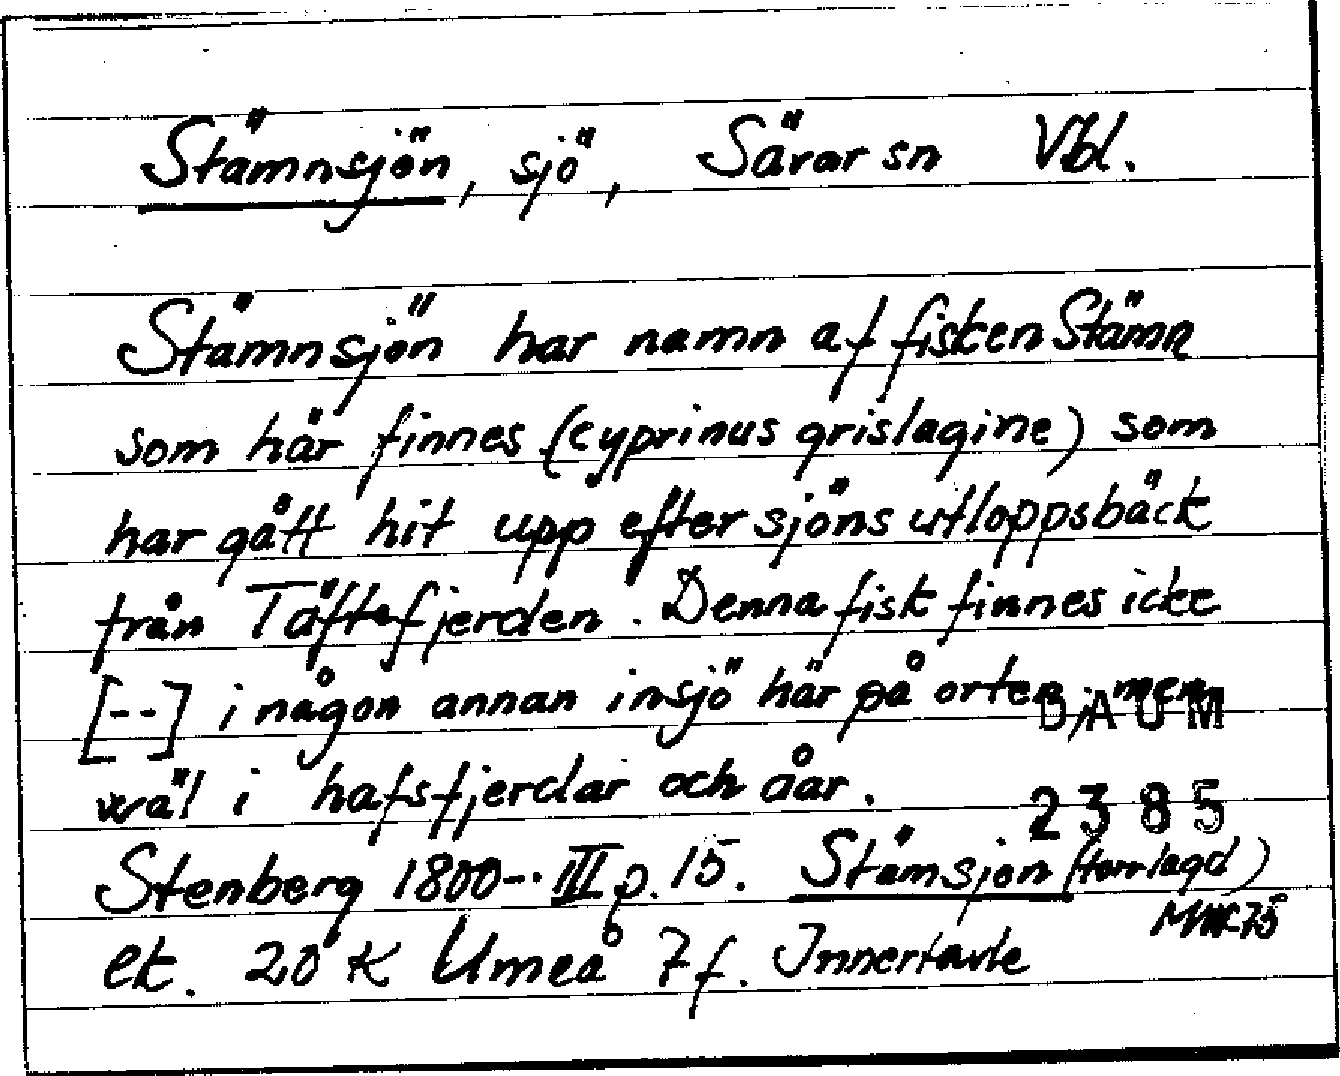 Stämnsjön, sjö, Sävar sn Vbl.
Stämnsjön har namn af fisken Stämn
som här finnes (cyprinus grislagine) som
har gått hit upp efter sjöns utloppsbäck
från Täftefjerden. Denna fisk finnes icke
[--] i någon annan insjö här på orten, men
wäl i hafsfjerdar och åar.
DAUM
2385
Stenberg 1800-. III p. 15. Stämsjön (torrlagd)
ek. 20 K Umeå 7f. Innertavle